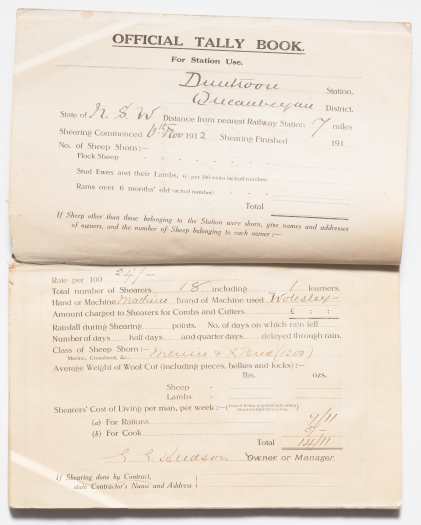 OFFICIAL TALLY BOOK.
For Station Use.
Duntroon Station.
Queanbeyan District.
State of N.S.W Distance from nearest Railway Station 7 miles
Shearing Commenced 6th Nov 1912 Shearing Finished 191
No. of Sheep Shorn:—
Flock Sheep
Stud Ewes and their Lambs,
Rams over 6 months' old (actual number)
Total
If Sheep other than those belonging to the Station were shorn, give names and addresses
of owners, and the number of Sheep belonging to each owner:—
Rate per 100 24/-
Total number of Shearers 18 including 1 learners.
Hand or Machine Machine Brand of Machine used Wolseley
Amount charged to Shearers for Combs and Cutters £ : :
Rainfall during Shearing points. No. of days on which rain fell
Number of days half days and quarter days delayed through rain.
Class of Sheep Shorn:—
Merino, Crossbred, &c.
Average Weight of Wool Cut (including pieces, bellies and locks):—
lbs. ozs.
Sheep
Lambs
Shearers' Cost of Living per man, per week:—
(a) For Rations 9/11
(b) For Cook
Total 14/11
Hudson Owner or Manager.
If Shearing done by Contract,
state Contractor's Name and Address